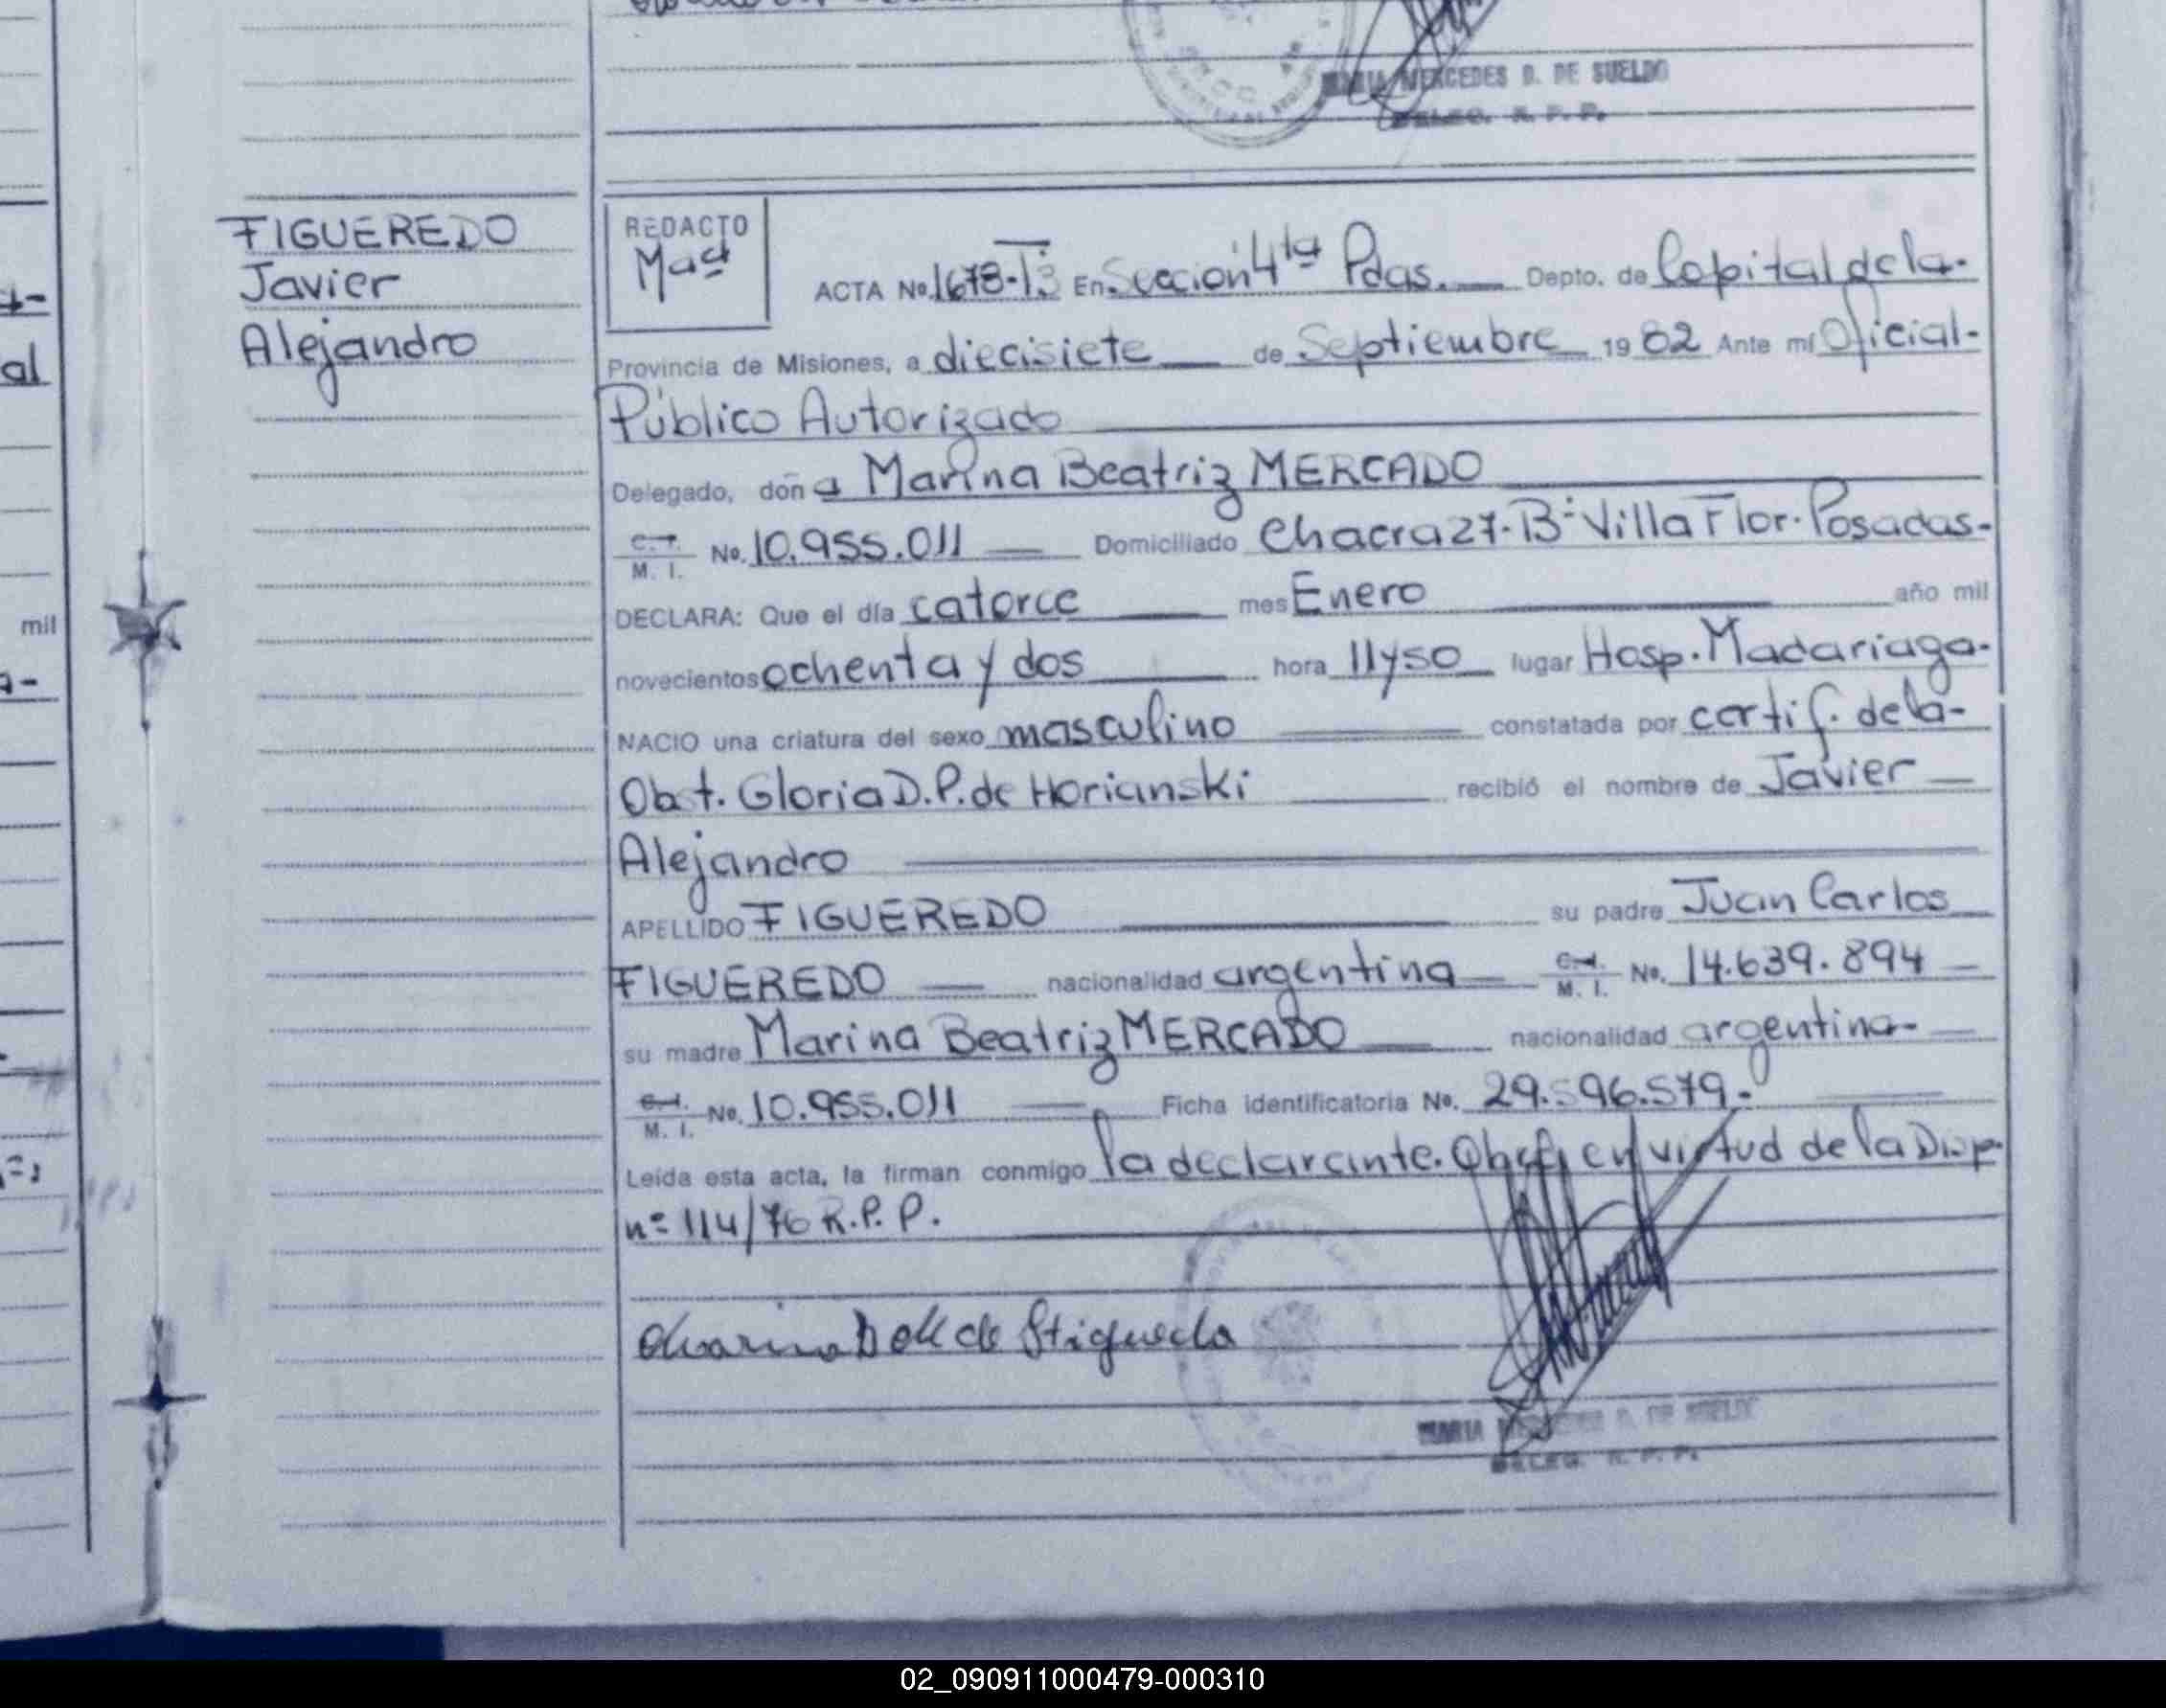 MARIA MERCEDES D. DE SUELDO
DELEG. R. P. P.
FIGUEREDO
Javier
Alejandro
REDACTO
Mad
ACTA No. 1678-T3 En Sección 4ta Pdas. Depto. de Capital de la-
Provincia de Misiones, a diecisiete de Septiembre 1982 Ante mí Oficial-
Público Autorizado
Delegado, doña Marina Beatriz MERCADO
C. I. M. I. No. 10.955.011 Domiciliado Chacra 27-Bº Villa Flor-Posadas-
DECLARA: Que el día catorce mes Enero año mil
novecientos ochenta y dos hora 11y50 lugar Hosp. Madariaga-
NACIO una criatura del sexo masculino constatada por certif. de la-
Obst. Gloria D.P. de Horianski recibió el nombre de Javier
Alejandro
APELLIDO FIGUEREDO su padre Juan Carlos
FIGUEREDO nacionalidad argentina C. I. M. I. No. 14.639.894
su madre Marina Beatriz MERCADO nacionalidad argentina-
C. I. M. I. No. 10.955.011 Ficha identificatoria No. 29.596.579.-
Leída esta acta, la firman conmigo la declarante. en virtud de la Disp.
nº 114/76 R.P.P.
MARIA MERCEDES D. DE SUELDO
DELEG. R. P. P.
al
mil
02_090911000479-000310